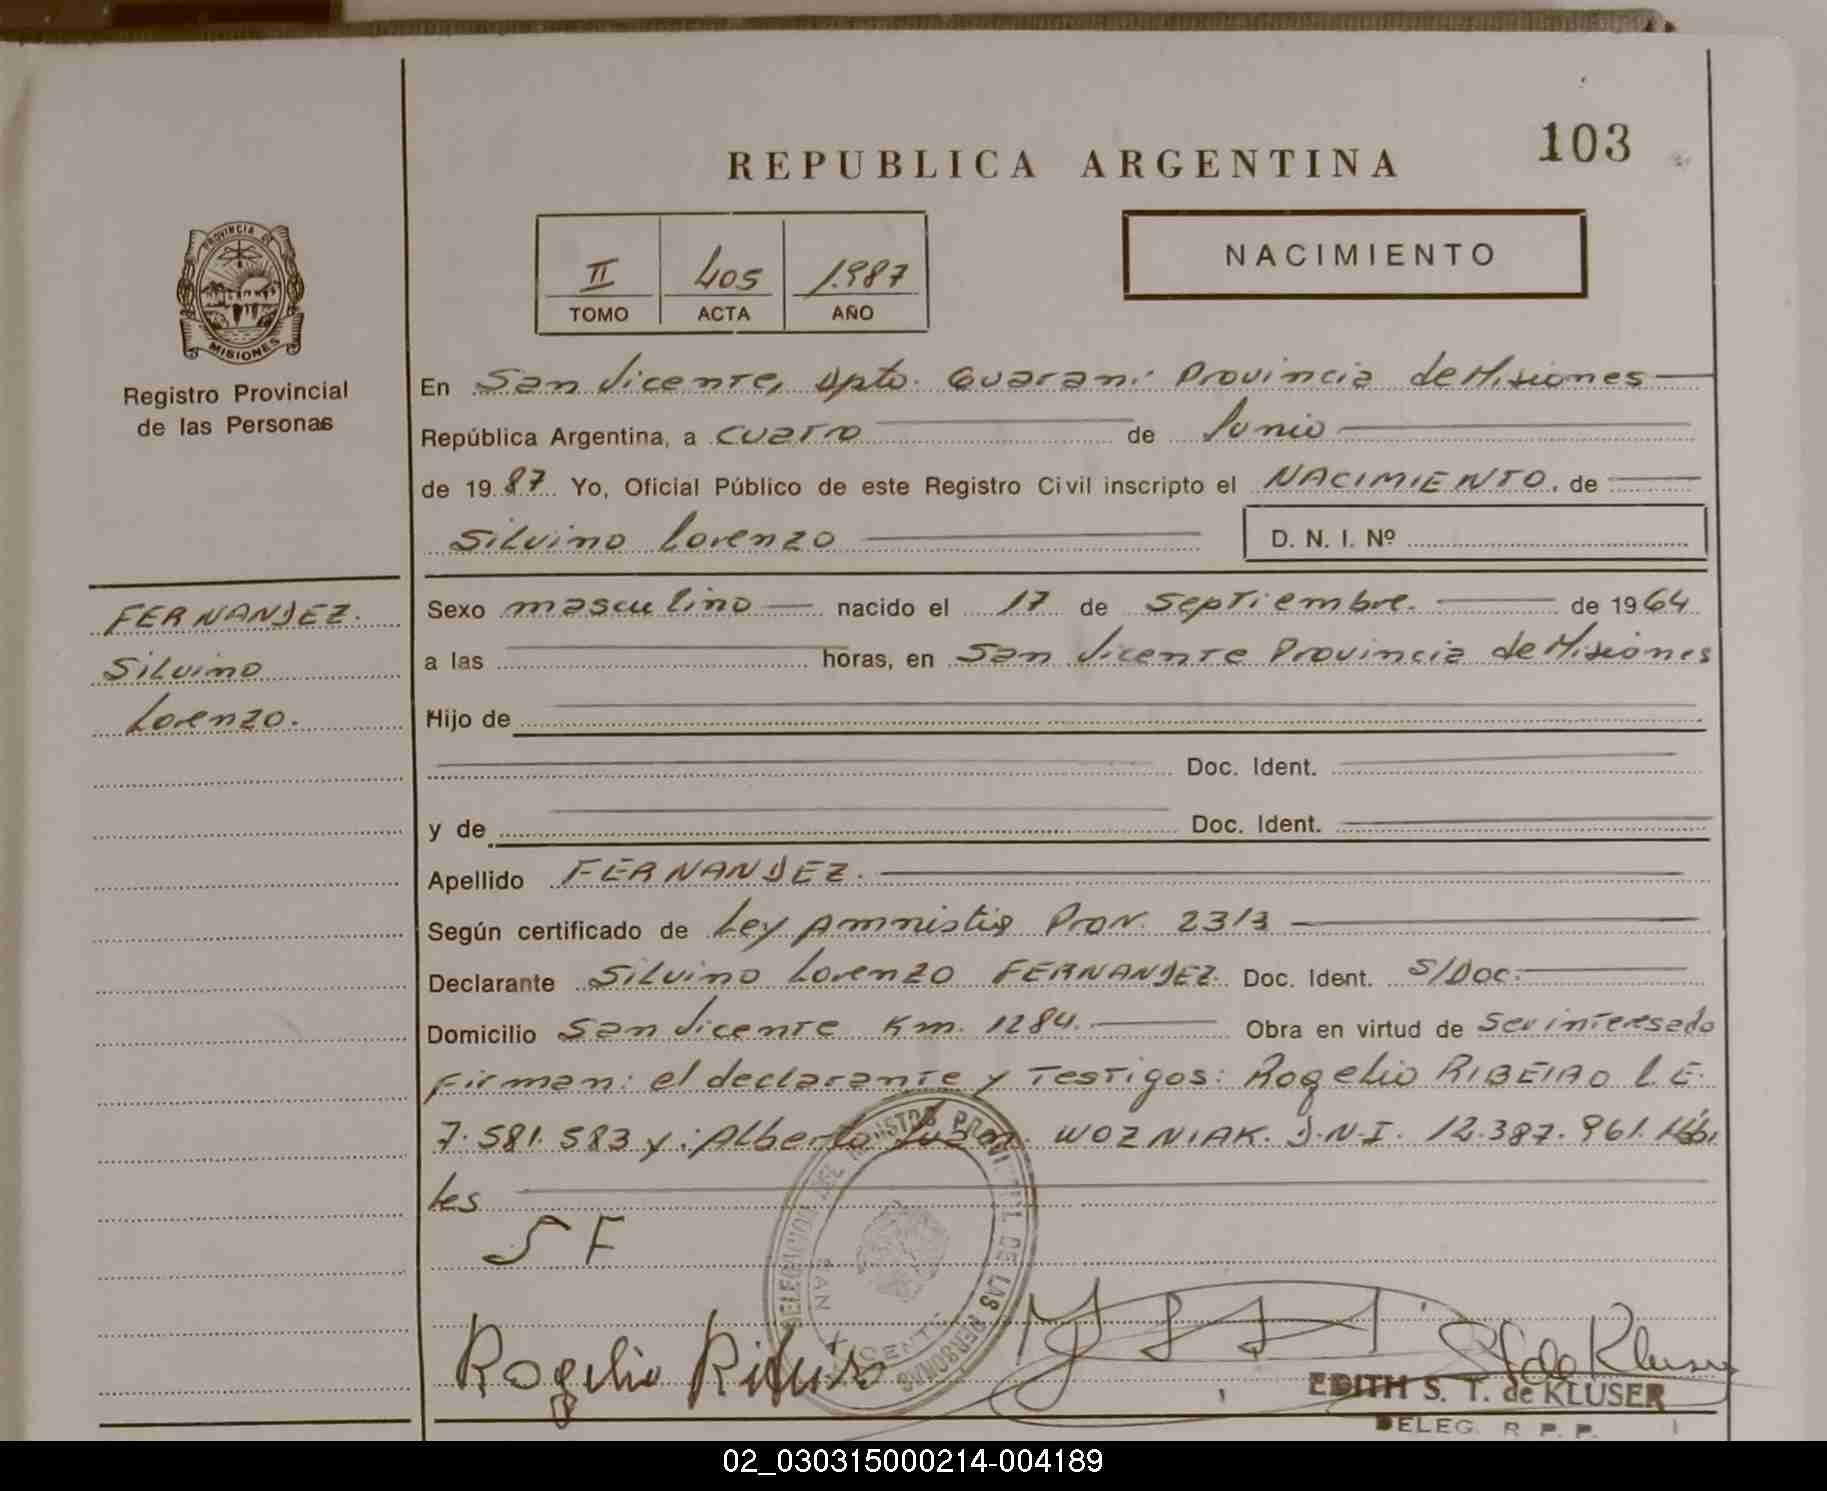 103
REPUBLICA ARGENTINA
NACIMIENTO
II 405 1.987
TOMO ACTA AÑO
PROVINCIA DE
MISIONES
Registro Provincial
de las Personas
En San Vicente, Dpto. Guarani Provincia de Misiones
República Argentina, a cuatro de Junio
de 1987. Yo, Oficial Público de este Registro Civil inscripto el NACIMIENTO. de
Silvino Lorenzo D. N. I. Nº
FERNANDEZ.
Silvino
Lorenzo.
Sexo masculino nacido el 17 de Septiembre. de 1964
a las horas, en San Vicente Provincia de Misiones
Hijo de
Doc. Ident.
y de Doc. Ident.
Apellido FERNANDEZ.
Según certificado de Ley Amnistia Prov. 2313
Declarante Silvino Lorenzo FERNANDEZ. Doc. Ident. S/Doc.
Domicilio San Vicente Km. 1284. Obra en virtud de Ser interesado
Firman: el declarante y Testigos: Rogelio RIBEIRO L.E.
7.581.583 y: Alberto Juan. WOZNIAK. D.N.I. 12.387.961. Hábi
les
S F
DELEGACION DEL REGISTRO PROVINCIAL DE LAS PERSONAS
SAN VICENTE
Rogelio
EDITH S. T. de KLUSER
DELEG. R. P. P.
02_030315000214-004189